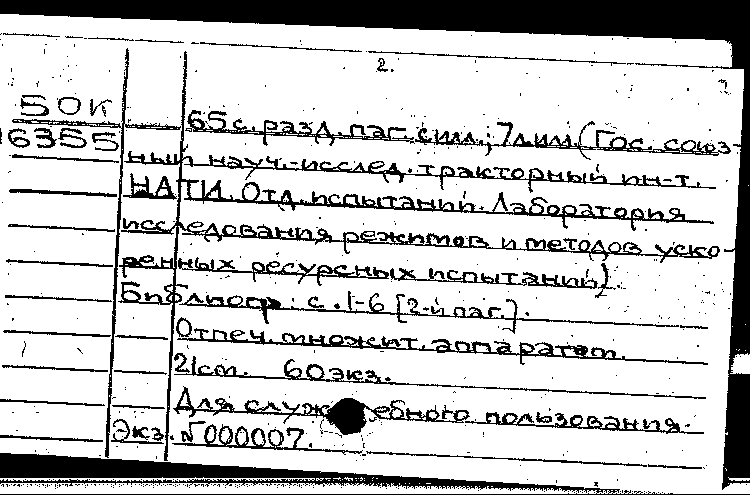 2.
50к
6355
65 с. разд. паг. с илл.; 7 л. илл. (Гос. союз-
ный науч.-исслед. тракторный ин-т.
НАТИ. Отд. испытаний. Лаборатория
исследования режимов и методов уско-
ренных ресурсных испытаний).
Библиогр: с. 1-6 [2-й паг.].
Отпеч. множит. аппаратом.
21см. 60 экз.
Для служебного пользования.
Экз. № 000007.